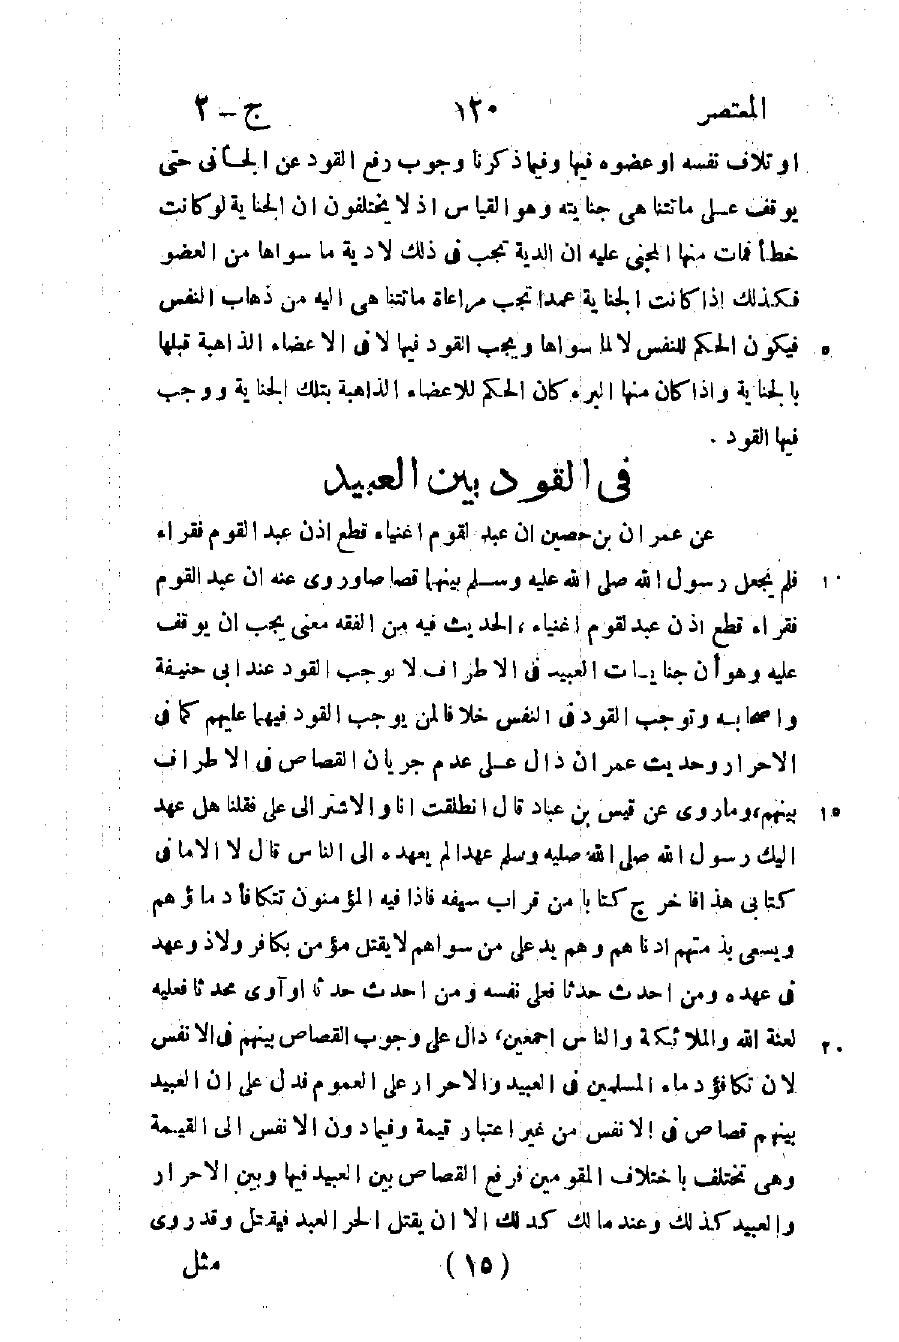 المعتصر ١٢٠ ج – ٢
او تلاف نفسه او عضوه فيها وفيما ذكرنا وجوب رفع القود عن الجانى حتى
يوقف على ما تتناهى جنايته وهو القياس اذ لا يختلفون ان الجناية لو كانت
خطأ فمات منها المجنى عليه ان الدية تجب فى ذلك لا دية ما سواها من العضو
فكذلك اذا كانت الجناية عمدا تجب مراعاة ما تتناهى اليه من ذهاب النفس
فيكون الحكم للنفس لا لما سواها ويجب القود فيها لا فى الاعضاء الذاهبة قبلها ٥
بالجناية واذا كان منها البرء كان الحكم للاعضاء الذاهبة بتلك الجناية ووجب
فيها القود .
فى القود بين العبيد
عن عمران بن حصين ان عبد لقوم اغنياء قطع اذن عبد القوم فقراء
فلم يجعل رسول الله صلى الله عليه وسلم بينهما قصاصا وروى عنه ان عبد القوم ١٠
فقراء قطع اذن عبد لقوم اغنياء ، الحديث فيه من الفقه معنى يجب ان يوقف
عليه وهو أن جنايات العبيد فى الاطراف لا توجب القود عند ابى حنيفة
واصحابه وتوجب القود فى النفس خلافا لمن يوجب القود فيهما عليهم كما فى
الاحرار وحديث عمران دال على عدم جريان القصاص فى الاطراف
بينهم، وما روى عن قيس بن عباد قال انطلقت انا والاشتر الى على فقلنا هل عهد ١٥
اليك رسول الله صلى الله صليه وسلم عهدا لم يعهده الى الناس قال لا الا ما فى
كتابى هذا فاخرج كتابا من قراب سيفه فاذا فيه المؤمنون تتكافأ دماؤهم
ويسعى بذمتهم ادناهم وهم يد على من سواهم لا يقتل مؤمن بكافر ولا ذو عهد
فى عهده ومن احدث حدثا فعلى نفسه ومن احدث حدثا او آوى محدثا فعليه
لعنة الله والملائكة والناس اجمعين، دال على وجوب القصاص بينهم فى الانفس ٢٠
لان تكافؤ دماء المسلمين فى العبيد والاحرار على العموم فدل على ان العبيد
بينهم قصاص فى الانفس من غير اعتبار قيمة وفيما دون الانفس الى القيمة
وهى تختلف باختلاف المقومين فرفع القصاص بين العبيد فيها وبين الاحرار
والعبيد كذلك وعند مالك كذلك الا ان يقتل الحر العبد فيقتل وقد روى
(١٥) مثل